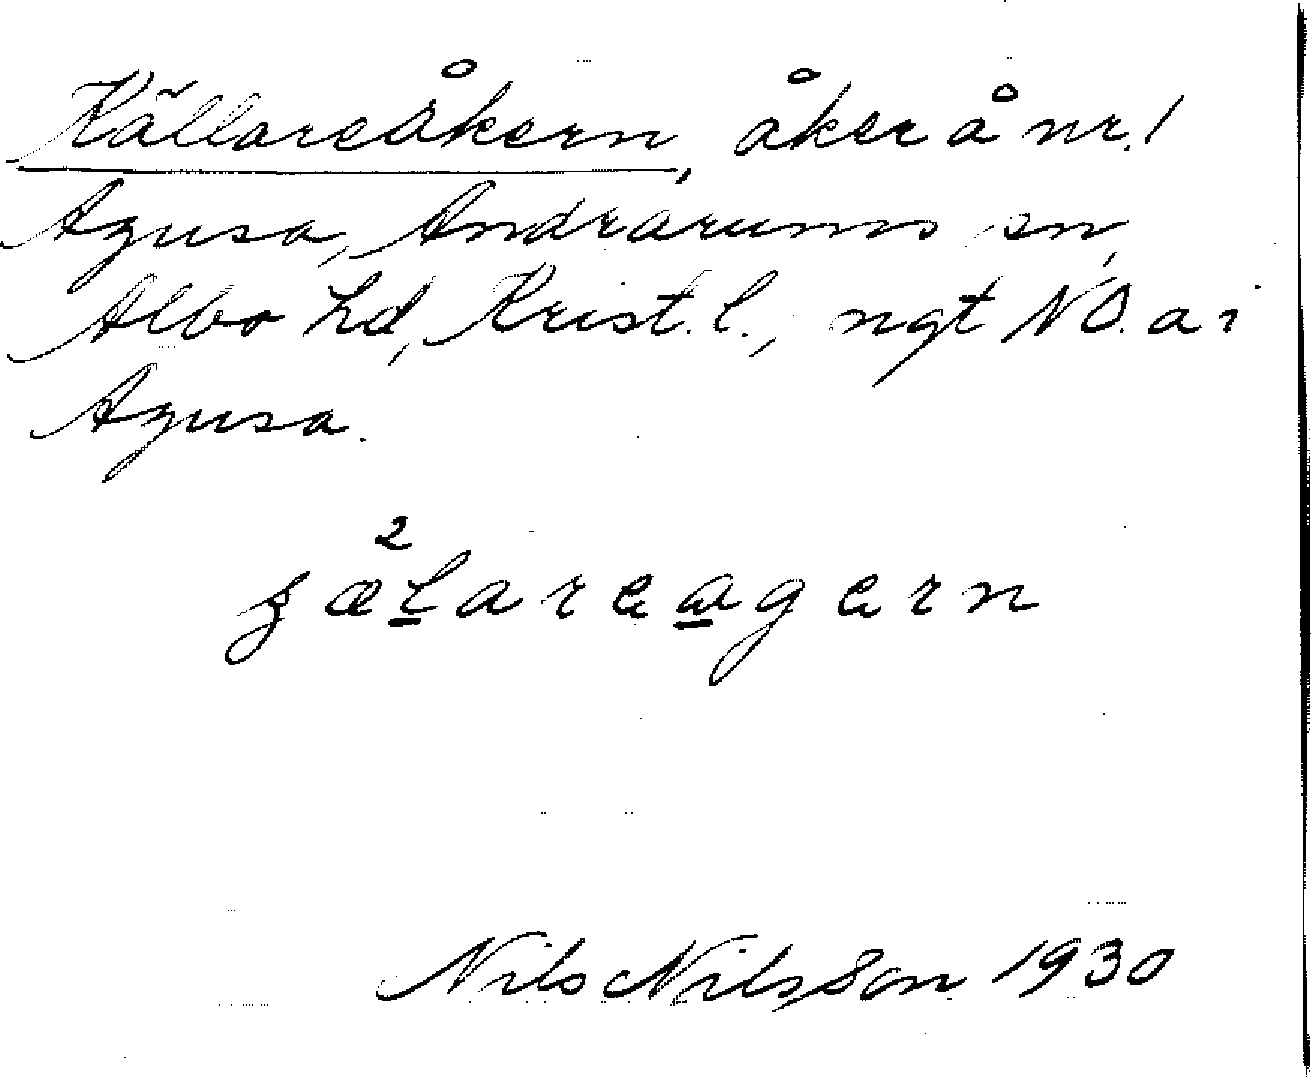 Källareåkern, åker å nr. 1
Agusa, Andrarums sn,
Albo hd, Krist. l., ngt NO. a i
Agusa.
Nils Nilsson 1930